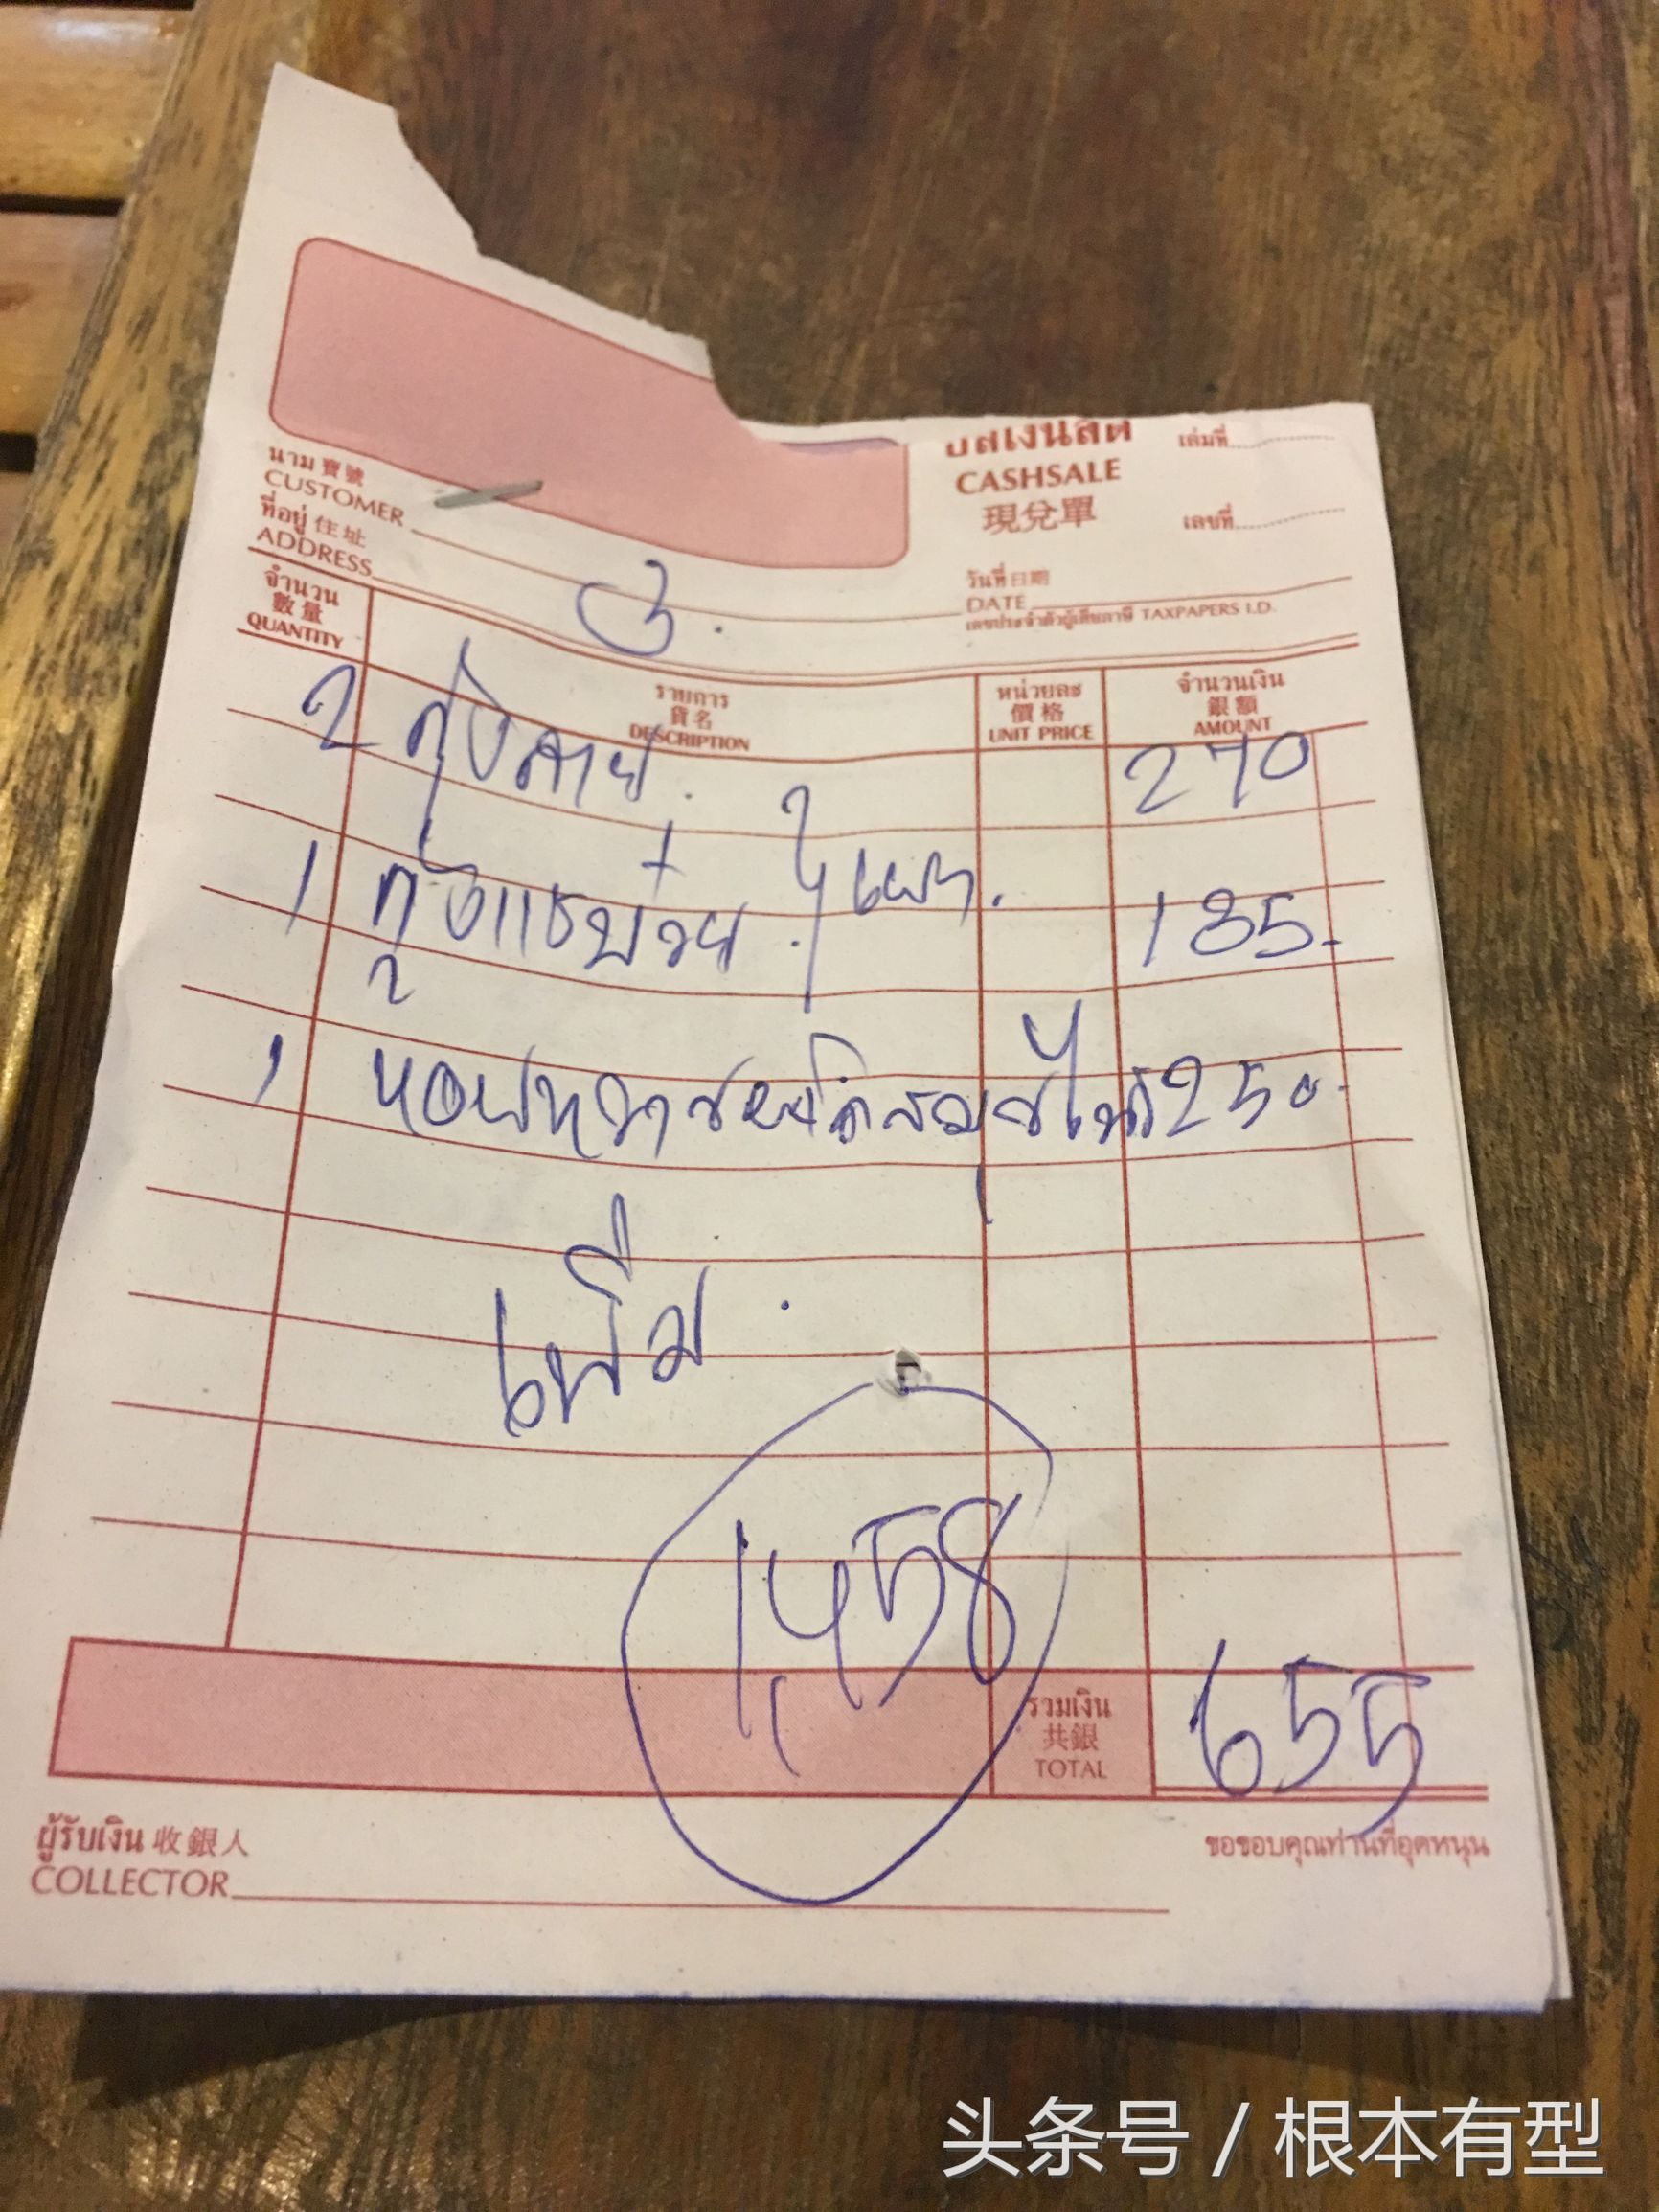 บิลเงินสด
CASHSALE
現兌單
เล่มที่
เลขที่
นาม寶號
CUSTOMER
ที่อยู่住址
ADDRESS
3.
วันที่日期
DATE
เลขประจำตัวผู้เสียภาษี TAXPAPERS I.D.
จำนวน
數量
QUANTITY
รายการ
貨名
DESCRIPTION
หน่วยละ
價格
UNIT PRICE
จำนวนเงิน
銀額
AMOUNT
2 270
1 185.-
1 250.-
เพิ่ม.
1,458
รวมเงิน
共銀
TOTAL
655
ผู้รับเงิน 收銀人
COLLECTOR
ขอขอบคุณท่านที่อุดหนุน
头条号 / 根本有型